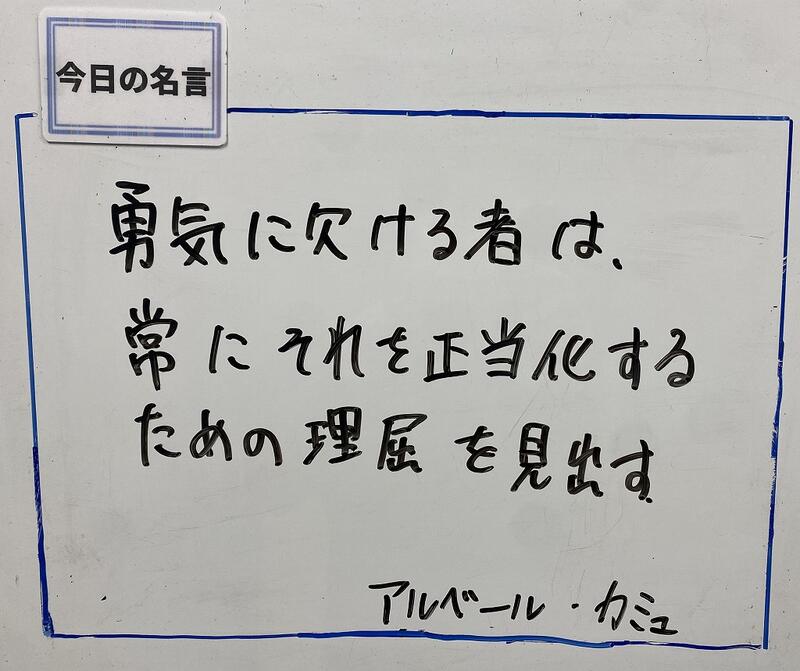 今日の名言
勇気に欠ける者は、
常にそれを正当化する
ための理屈を見出す
アルベール・カミュ